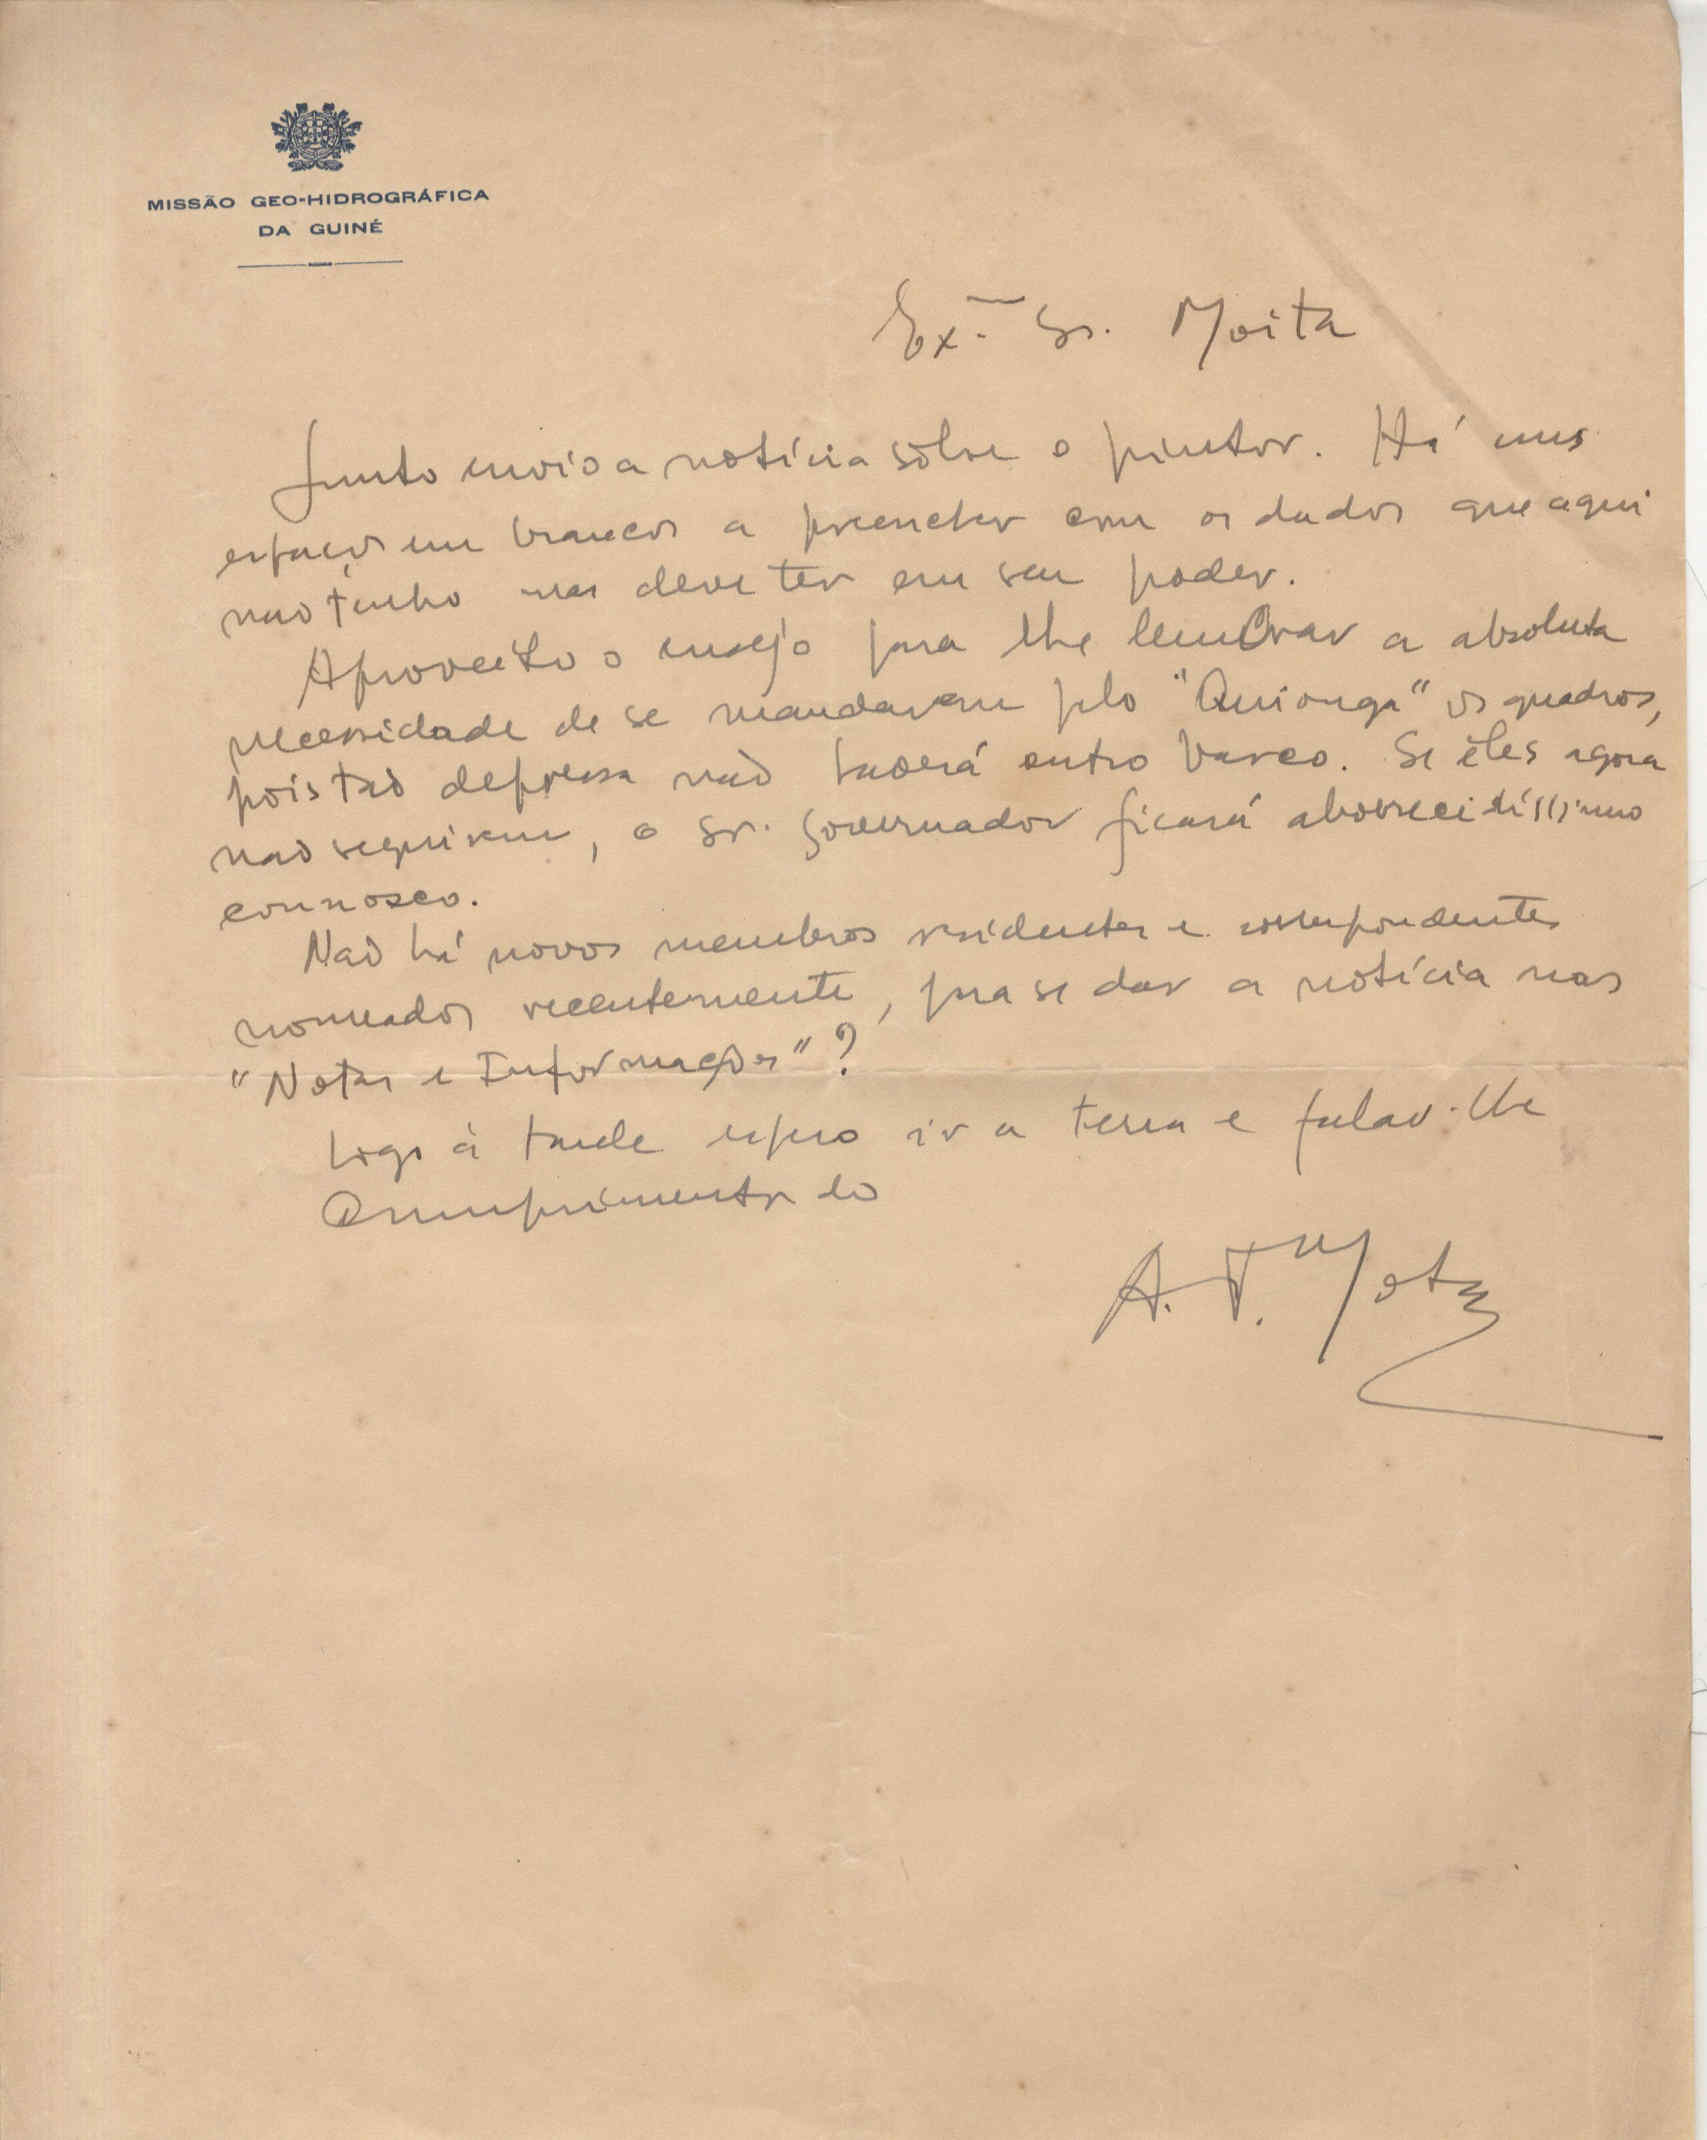 MISSÃO GEO-HIDROGRÁFICA
DA GUINÉ
Ex.mo Sr. Moita
Junto envio a notícia sôbre o pintor. Há uns
espaços em brancos a preencher com os dados que aqui
não tenho mas deve ter em seu poder.
Aproveito o ensejo para lhe lembrar a absoluta
necessidade de se mandarem pelo "Quionga" os quadros,
pois tão depressa não haverá outro barco. Se êles agora
não seguirem, o Sr. Governador ficará aborrecidíssimo
connosco.
Não há novos membros residentes e correspondentes
nomeados recentemente, para se dar a notícia nas
"Notas e Informações"?
Logo à tarde espero ir a terra e falar-lhe
Cumprimentos do
A. T. Mota